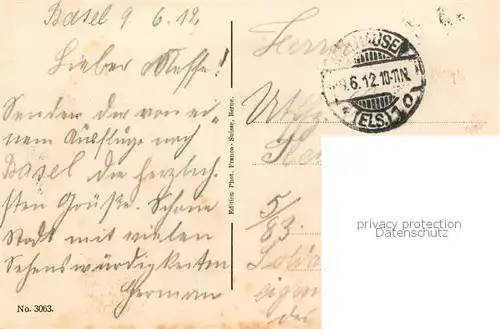 Basel 9. 6. 12
Lieber Neffe!
Sender der von ei
nem Ausfluge nach
Basel die herzlich
sten Grüße. Schöne
Stadt mit vielen
Sehenswürdigkeiten
Herman
No. 3063.
Edition Phot. Franco-Suisse, Berne.
Herrn
9.6.12.10-11N.
(ELS.)
5/83.
privacy protection
Datenschutz